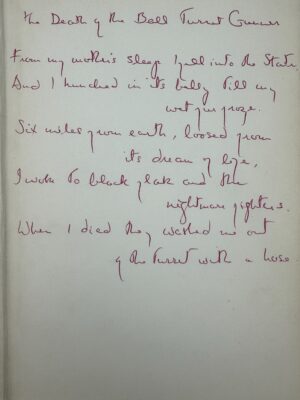 The Death of the Ball Turret Gunner
From my mother's sleep I fell into the State,
And I hunched in its belly till my
wet fur froze.
Six miles from earth, loosed from
its dream of life,
I woke to black flak and the
nightmare fighters.
When I died they washed me out
of the turret with a hose